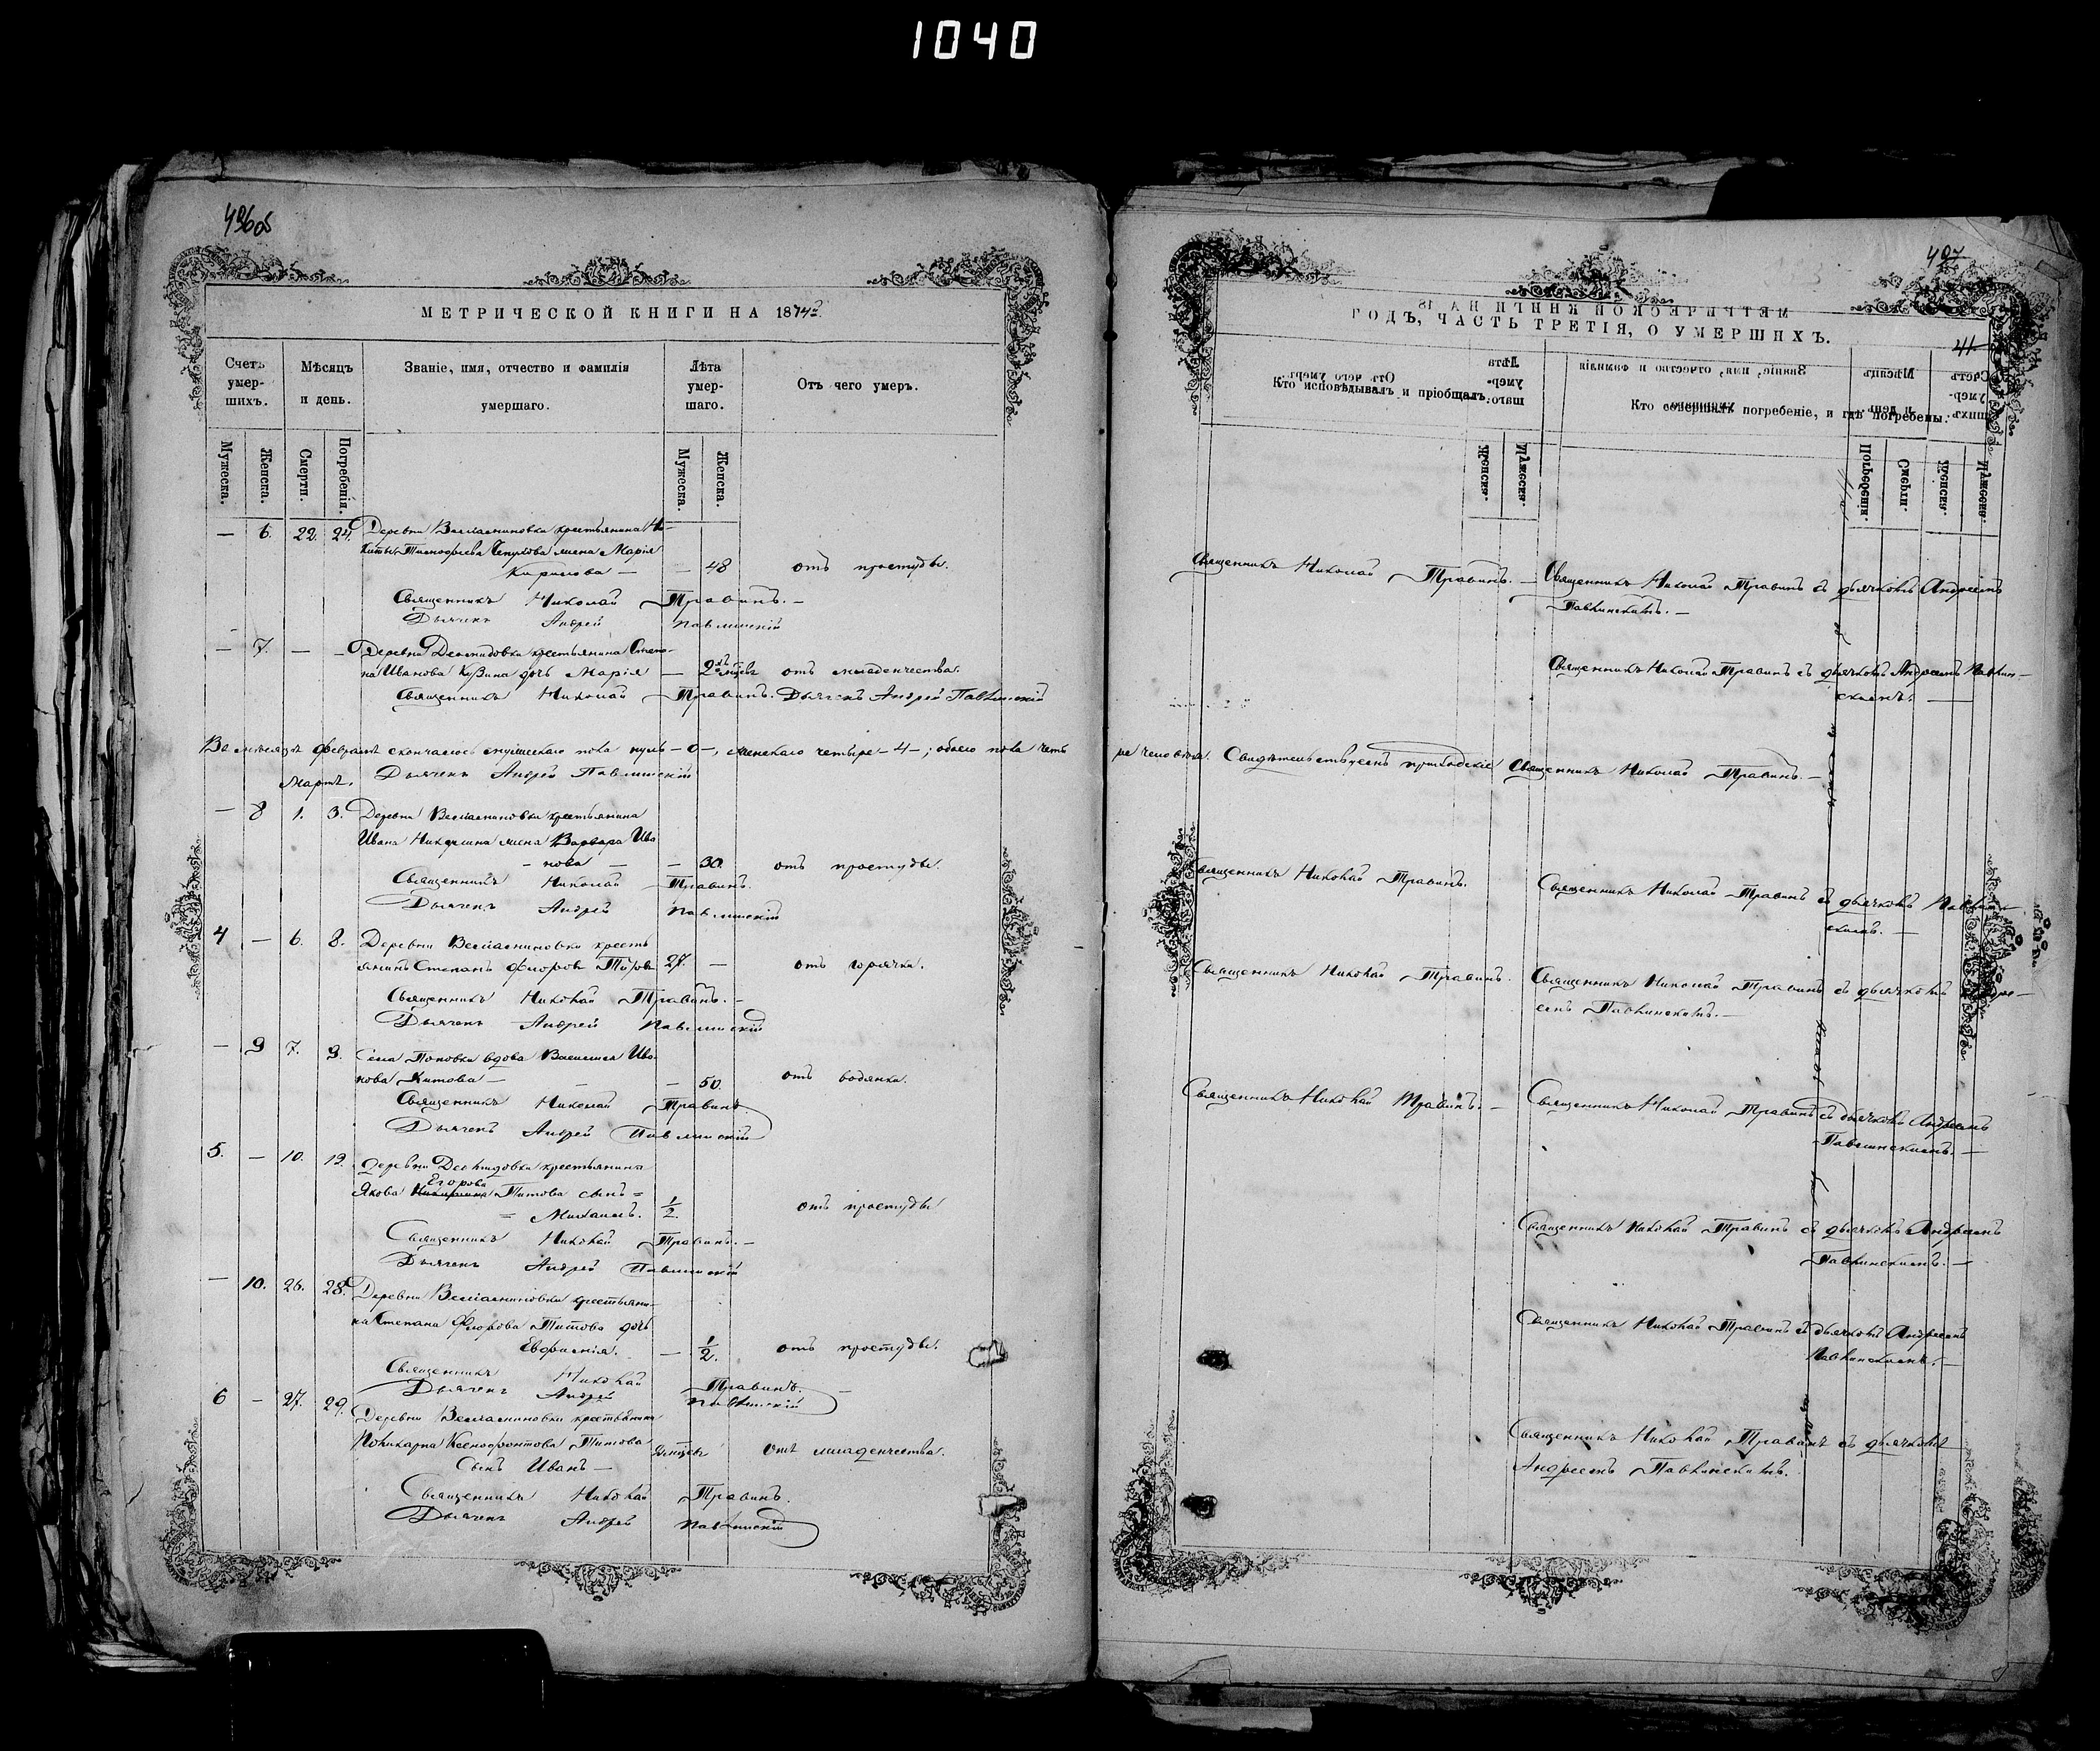 1040
496об
МЕТРИЧЕСКОЙ КНИГИ НА 1874
Счетъ умер-шихъ.
Мѣсяцъ и день.
Званіе, имя, отчество и фамилія умершаго.
Лѣта умер-шаго.
Отъ чего умеръ.
Мужеска.
Женска.
Смерти.
Погребенія.
Мужеска.
Женска.
— 6. 22. 24. Деревни крестьянина Ни-
киты жена Марія
Кирилова — — 48 отъ простуды.
Священникъ Николай Травинъ. —
Дьячекъ Андрей Павлинскій
— 7. — — Деревни Демидовки крестьянина Степа-
на Иванова дочь Марія — 2 отъ младенчества.
Священникъ Николай Травинъ. Дьячекъ Андрей Павлинскій
Въ мѣсяцѣ Февралѣ скончалось мужескаго пола нуль — 0 —, женскаго четыре — 4 —; обоего пола четы
Дьячекъ Андрей Павлинскій
Мартъ.
— 8 1. 3. Деревни крестьянина
Ивана жена Варвара Ива
нова — — 30. отъ простуды.
Священникъ Николай Травинъ.
Дьячекъ Андрей Павлинскій
4 — 6. 8. Деревни кресть
янинъ Степанъ Флоровъ Титовъ 27. — отъ горячки.
Священникъ Николай Травинъ. —
Дьячекъ Андрей Павлинскій
— 9 7. 9. Села Поповки вдова Василиса Ива
нова Титова — — 50. отъ водянки.
Священникъ Николай Травинъ
Дьячекъ Андрей Павлинскій
5. — 10. 12. Деревни Демидовки крестьянина
Егорова
Якова Титова сынъ =
= Михаилъ. 1/2. отъ простуды
Священникъ Николай Травинъ. —
Дьячекъ Андрей Павлинскій
— 10. 26. 28. Деревни крестьяни-
на Степана Флорова Титова дочь
Евфимія. — 1/2. отъ простуды.
Священникъ Николай Травинъ. —
Дьячекъ Андрей Павлинскій
6 — 27. 29. Деревни крестьянина
Поликарпа Ксенофонтова Титова
отъ младенчества.
Сынъ Иванъ —
Священникъ Николай Травинъ.
Дьячекъ Андрей Павлинскій
497
ГОДЪ, ЧАСТЬ ТРЕТІЯ, О УМЕРШИХЪ.
41
Кто исповѣдывалъ и пріобщалъ.
Кто совершилъ погребеніе, и гдѣ погребены.
Священникъ Николай Травинъ. — Священникъ Николай Травинъ съ дьячкомъ Андреемъ
Павлинскимъ. —
Священникъ Николай Травинъ съ дьячкомъ Андреемъ Павлин—
скимъ. —
ре человѣка. Свидѣтельствуемъ приходскіе Священникъ Николай Травинъ. —
Священникъ Николай Травинъ.
Священникъ Николай Травинъ съ дьячкомъ Павлин—
скимъ. —
Священникъ Николай Травинъ.
Священникъ Николай Травинъ съ дьячкомъ Андре—
емъ Павлинскимъ. —
Священникъ Николай Травинъ. — Священникъ Николай Травинъ съ дьячкомъ Андреемъ
Павлинскимъ. —
Священникъ Николай Травинъ съ дьячкомъ Андреемъ
Павлинскимъ. —
Священникъ Николай Травинъ съ дьячкомъ Андреемъ
Павлинскимъ. —
Священникъ Николай Травинъ съ дьячкомъ
Андреемъ Павлинскимъ.